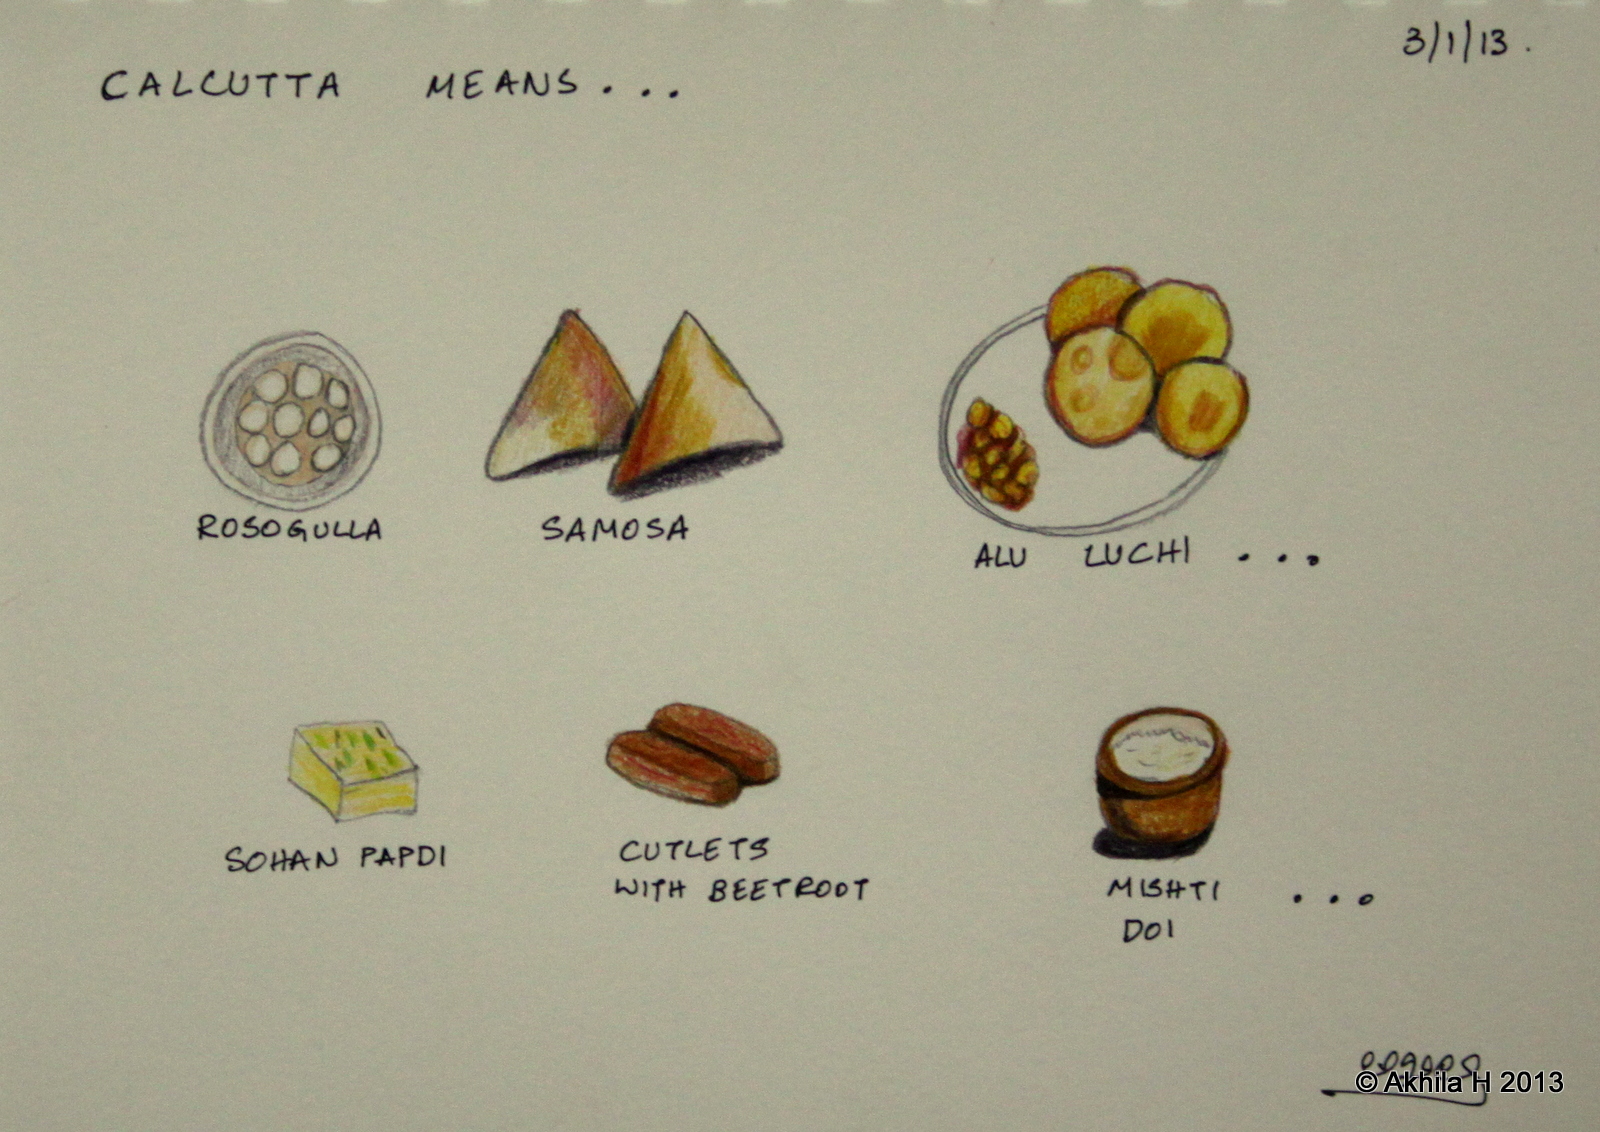 3/1/13.
CALCUTTA MEANS...
ROSOGULLA
SAMOSA
ALU LUCHI ...
SOHAN PAPDI
CUTLETS
WITH BEETROOT
MISHTI ...
DOI
© Akhila H 2013